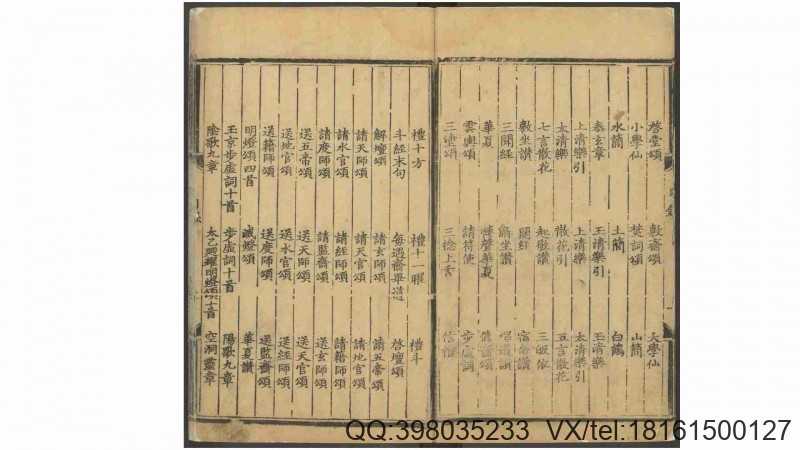 啓堂頌 敷齋頌 大學仙
小學仙 焚詞頌 山簡
水簡 土簡 白鶴
泰玄章 玉清樂引 玉清樂
上清樂引 上清樂 太清樂引
太清樂 散花引 五言散花
七言散花 起敬讚 三皈依
敷坐讚 宿命讚
三開經 解坐讚
華夏 轉聲華夏
雲輿頌 請符使 步虛詞
三塗頌 三捻上香
禮十方 禮十一曜 禮斗
斗經末句 每遇齋畢道 啓壇頌
解壇頌 請玄師頌 請五帝頌
請天師頌 請天官頌 請地官頌
請水官頌 請經師頌 請籍師頌
請度師頌 請監齋頌 送玄師頌
送五帝頌 送天師頌 送天官頌
送地官頌 送水官頌 送經師頌
送籍師頌 送度師頌 送監齋頌
明燈頌四首 滅燈頌 華夏讚
玉京步虛詞十首 步虛詞十首 陽歌九章
陰歌九章 太乙興曜明燈頌十首 空洞靈章
QQ:398035233 VX/tel:18161500127